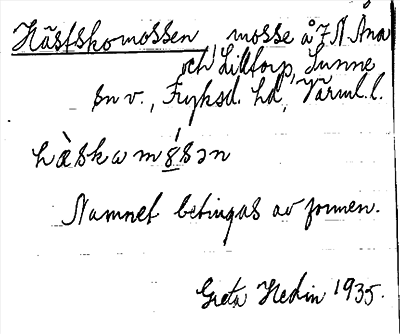 Hästskomossen mosse å Z N. Åna
och Lilltorp, Sunne
sn v., Fryksd. hd, Värml. l.
hὰskamósən
Namnet betingas av formen.
Greta Hedin 1935.